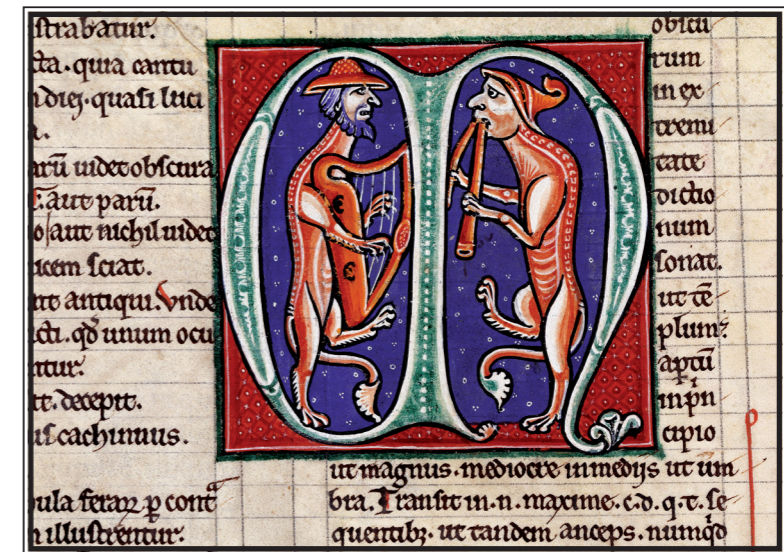 strabatur.
cta. quia cantu
n diej. quasi luci
a.
arū uidet obscura
aut parū.
o aut nichil uidet
icem sciat.
ure antiqui. Vnde
cti. qd unum ocu
ntur.
tt. decepit.
us cachinnus.
ula feraꝝ ꝑ cont
n illustrentur.
obscu
rum
in ex
tremi
tate
dictio
num
sonat.
ut tē
plum.
aptū
in pn
cipio
ut magnus. mediocre in medijs ut um
bra. Transit in .n. maxime .c.d.q.t. se
quentibꝫ. ut tandem anceps. numqd